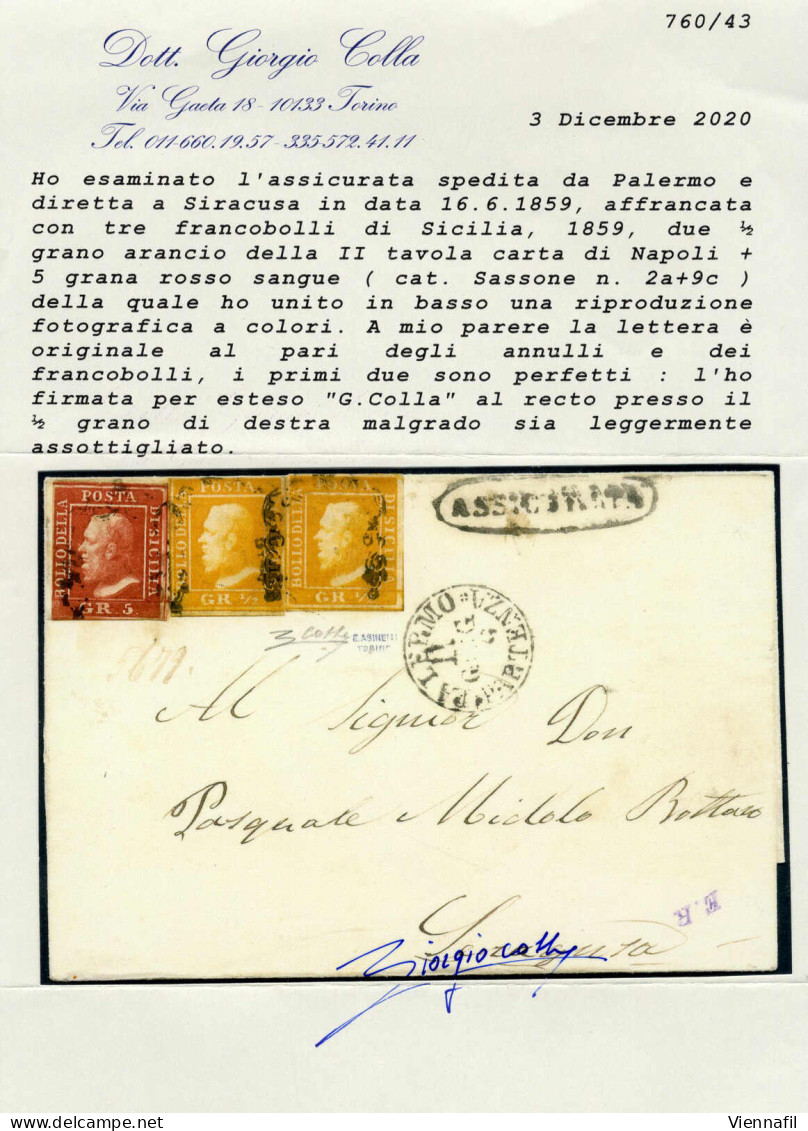 760/43
Dott. Giorgio Colla
Via Gaeta 18 - 10133 Torino
Tel. 011-660.19.57 - 335-572.41.11
3 Dicembre 2020
Ho esaminato l'assicurata spedita da Palermo e
diretta a Siracusa in data 16.6.1859, affrancata
con tre francobolli di Sicilia, 1859, due ½
grano arancio della II tavola carta di Napoli +
5 grana rosso sangue ( cat. Sassone n. 2a+9c )
della quale ho unito in basso una riproduzione
fotografica a colori. A mio parere la lettera è
originale al pari degli annulli e dei
francobolli, i primi due sono perfetti : l'ho
firmata per esteso "G.Colla" al recto presso il
½ grano di destra malgrado sia leggermente
assottigliato.
BOLLO DELLA POSTA DI SICILIA GR. 5.
BOLLO DELLA POSTA GR. ½
BOLLO DELLA DI SICILIA GR.
ASSICURATA
PALERMO PARTENZA
G Colla
E.ASINELLI
TORINO
Al Signor Don
Pasquale Midolo Bottaro
Siragusa
E.R
Giorgio Colla
Viennafil